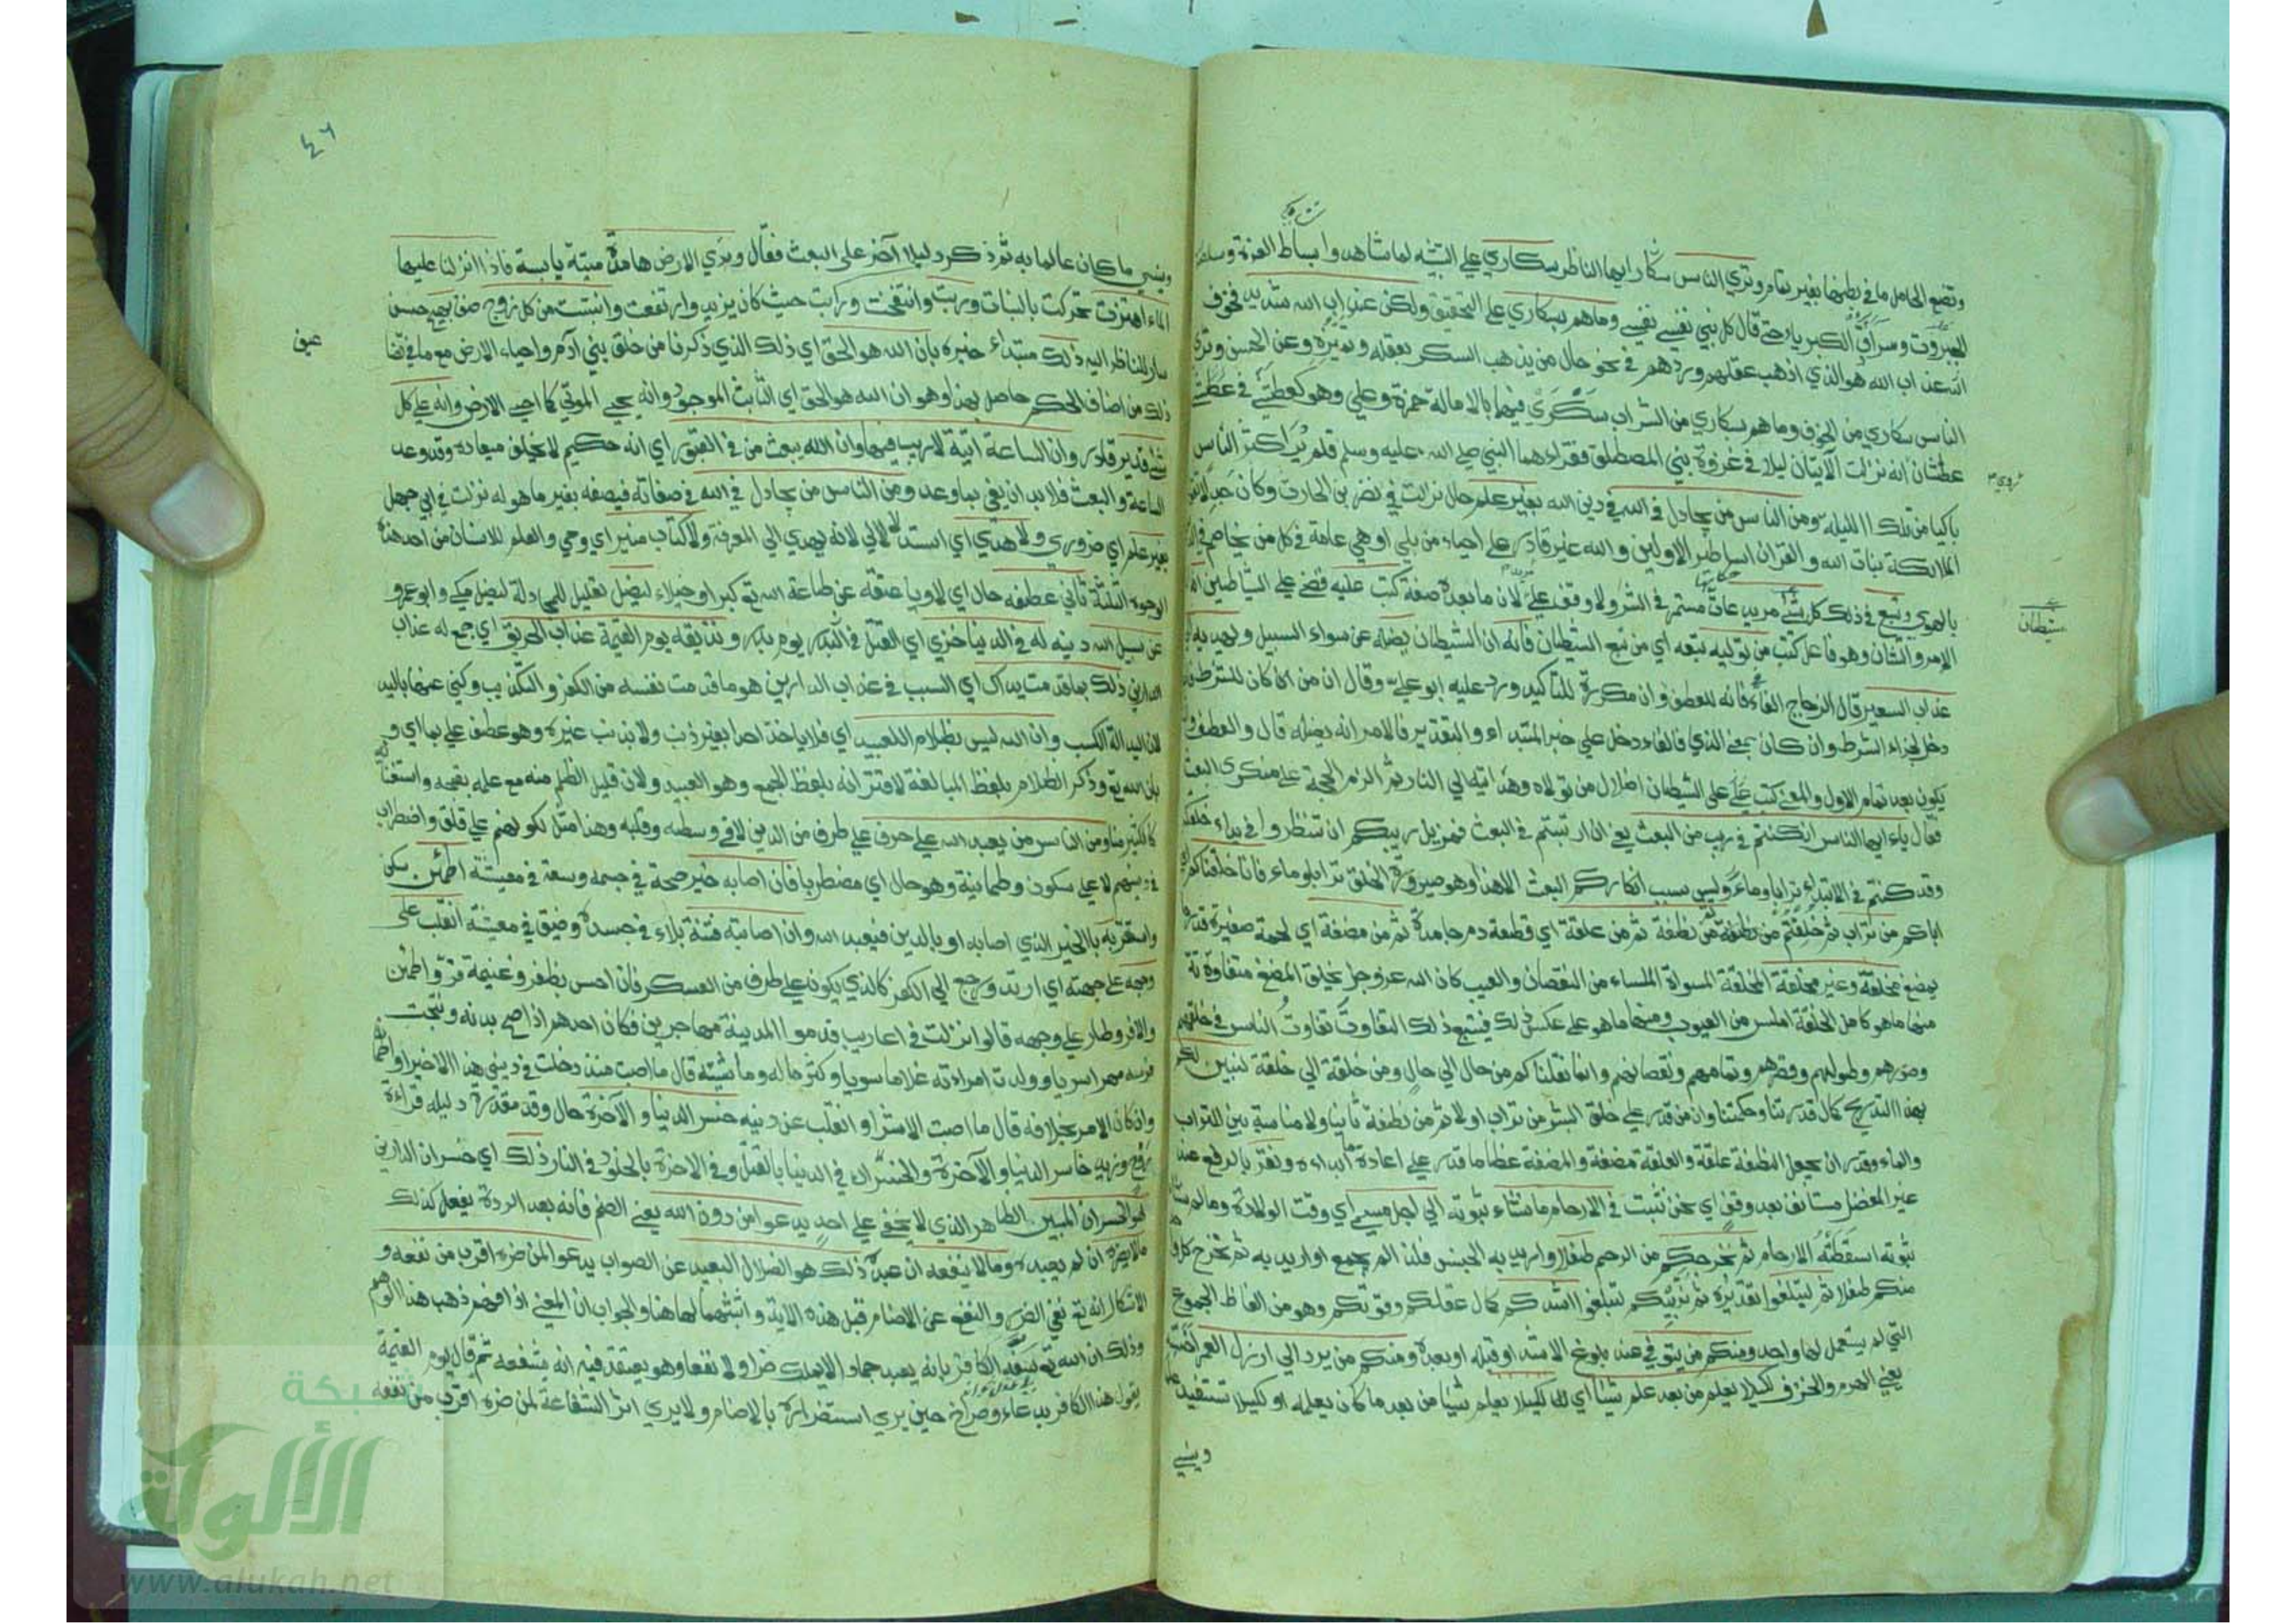 وتضع الحامل ما في بطنها بغير تمام وتري الناس سكاري ايها الناظر سكاري علي التشبيه لما شاهدوا بساط العزة وسلطنة
الجبروت وسرادق الكبرياء حتي قال كل نبي نفسي نفسي وما هم بسكاري علي التحقيق ولكن عذاب الله شديد فخوف
عذاب الله هو الذي اذهب عقلهم وردهم في نحو حال من يذهب السكر بعقله وتمييزه وعن الحسن وتري
الناس سكاري من الخوف وما هم بسكاري من الشراب سكري فيهما بالامالة حمزة وعلي وهو كعطشي في عطشان
انه نزلت الآيتان ليلا في غزوة بني المصطلق فقراءهما النبي صلي الله عليه وسلم فلم ير اكثر الناس
باكيا من تلك الليلة ومن الناس من يجادل في الله في دين الله بغير علم حال نزلت في نضر بن الحارث وكان جدلا يقول
الملائكة بنات الله والقران اساطير الاولين والله غير قادر علي احياء من بلي او هي عامة في كل من يخاصم في الدين
بالهوي ويتبع في ذلك كل شيطان مريد عات مستمر في الشر ولا وقف علي لان ما بعده صفة كتب عليه قضي علي الشياطين انه
الامر والشان وهو فاعل كتب من توليه تبعه اي من تبع الشيطان فانه ان الشيطان يضله عن سواء السبيل ويهديه الي
عذاب السعير قال الزجاج الفاء فانه للعطف وان مكررة للتاكيد ورد عليه ابو علي وقال ان من ان كان للشرط فالفاء
دخل لجزاء الشرط وان كان بمعني الذي فالفاء دخل علي خبر المبتداء والتقدير فالامر انه يضله قال والعطف
يكون بعد تمام الاول والمعني كتب علي الشيطان اضلال من تولاه وهدايته الي النار ثم الزم الحجة علي منكري البعث
فقال ياءايها الناس ان كنتم في ريب من البعث يعني ان ارتبتم في البعث فمزيل ريبكم ان تنظروا في بداء خلقكم
وقد كنتم في الابتداء ترابا وماء وليس سبب انكاركم البعث الا هذا وهو صيرورة الخلق ترابا وماء فانا خلقناكم اي
اباكم من تراب ثم خلقتم من نطفة ثم من علقة اي قطعة دم جامدة ثم من مضغة اي لحمة صغيرة قدر ما
يمضغ مخلقة وغير مخلقة المخلقة المسواة الملساء من النقصان والعيب كان الله عز وجل يخلق المضغ متفاوتة
منها ما هو كامل الخلقة املس من العيوب ومنها ما هو علي عكس ذلك فيتبع ذلك التفاوت تفاوت الناس في خلقهم
وصورهم وطولهم وقصرهم وتمامهم ونقصانهم وانما نقلناكم من حال الي حال ومن خلقة الي خلقة لنبين لكم
بهذا التدريج كمال قدرتنا وحكمتنا وان من قدر علي خلق البشر من تراب اولا ثم من نطفة ثانيا ولا مناسبة بين التراب
والماء وقدر ان يجعل النطفة علقة والعلقة مضغة والمضغة عظاما قدر علي اعادة ما ابداءه ونقر بالرفع عند
غير المفضل مستانف بعد وقف اي نحن نثبت في الارحام ما نشاء ثبوته الي اجل مسمي اي وقت الولادة وما لم نشاء
ثبوته اسقطته الارحام ثم نخرجكم من الرحم طفلا واريد به الجنس فلذا لم يجمع او اريد به ثم نخرج كل واحد
منكم طفلا ثم لتبلغوا تقديره ثم نربيكم لتبلغوا اشدكم كمال عقلكم وقوتكم وهو من الفاظ الجموع
التي لم يستعمل لها واحد ومنكم من يتوفي عند بلوغ الاشد او قبله او بعده ومنكم من يرد الي ارذل العمر اخسه
يعني الهرم والخرف لكيلا يعلم من بعد علم شيئا اي لكيلا يعلم شيئا من بعد ما كان يعلمه او لكيلا يستفيد
وينسي
شيطان
٤٦
وينسي ما كان عالما به ثم ذكر دليلا آخر علي البعث فقال وتري الارض هامدة ميتة يابسة فاذا انزلنا عليها
الماء اهتزت تحركت بالنبات وربت وانتفخت وربأت حيث كان يزيد وارتفعت وانبتت من كل زوج صنف بهيج حسن
سار للناظر اليه ذلك مبتداء خبره بان الله هو الحق اي ذلك الذي ذكرنا من خلق بني آدم واحياء الارض مع ما في تضا
ذلك من اصناف الحكم حاصل بهذا وهو ان الله هو الحق اي الثابت الموجود وانه يحيي الموتي كما احيي الارض وانه علي كل
شيء قدير قادر وان الساعة اتية لا ريب فيها وان الله يبعث من في القبور اي انه حكيم لا يخلف ميعاده وقد وعد
الساعة والبعث فلا بد ان يفي بما وعد ومن الناس من يجادل في الله في صفاته فيصفه بغير ما هو له نزلت في ابي جهل
بغير علم اي ضروري ولا هدي اي استدلالي لانه يهدي الي المعرفة ولا كتاب منير اي وحي والعلم للانسان من احد هذه
الوجوه الثلثة ثاني عطفه حال اي لاويا عنقه عن طاعة الله تع كبرا وخيلاء ليضل تعليل للمجادلة ليضل مكي وابو عمرو
عن سبيل الله دينه له في الدنيا خزي اي القتل في البدر يوم بدر ونذيقه يوم القيمة عذاب الحريق اي جمع له عذاب
الدارين ذلك بما قدمت يداك اي السبب في عذاب الدارين هو ما قدمت نفسه من الكفر والتكذيب وكني عنها باليد
لان اليد الة الكسب وان الله ليس بظلام للعبيد اي فلا ياخذ احدا بغير ذنب ولا بذنب غيره وهو عطف علي بما اي و
بان الله تع وذكر الظلام بلفظ المبالغة لاقترانه بلفظ الجمع وهو العبيد ولان قليل الظلم منه مع علمه بقبحه واستغنائه
كالكثير منا ومن الناس من يعبد الله علي حرف علي طرف من الدين لا في وسطه وقلبه وهذا مثل لكونهم علي قلق واضطراب
في دينهم لا علي سكون وطمانينة وهو حال اي مضطربا فان اصابه خير صحة في جسمه وسعة في معيشة اطمئن سكن
واستقر به بالخير الذي اصابه او بالدين فيعبد الله وان اصابته فتنة بلاء في جسده وضيق في معيشة انقلب علي
وجهه علي جهته اي ارتد ورجع الي الكفر كالذي يكون علي طرف من العسكر فان احس بظفر وغنيمة قر واطمئن
والا فر وطار علي وجهه قالوا نزلت في اعاريب قدموا المدينة مهاجرين فكان احدهم اذا صح بدنه ونتجت
فرسه مهرا سريا وولدت امراءته غلاما سويا وكثر ماله وماشيته قال ما اصبت منذ دخلت في ديني هذا الا خيرا واطمأن
وان كان الامر بخلافه قال ما اصبت الا شرا وانقلب عن دينه خسر الدنيا والآخرة حال وقد مقدرة دليله قراءة
روح وزيد خاسر الدنيا والآخرة والخسران في الدنيا بالقتل وفي الاخرة بالخلود في النار ذلك اي خسران الدارين
هو الخسران المبين الظاهر الذي لا يخفي علي احد يدعوا من دون الله يعني الصنم فانه بعد الردة يفعل كذلك
ما لا يضره ان لم يعبده وما لا ينفعه ان عبده ذلك هو الضلال البعيد عن الصواب يدعوا لمن ضره اقرب من نفعه و
الاشكال انه تع نفي الضر والنفع عن الاصنام قبل هذه الاية واثبتهما لها هنا والجواب ان المعني اذا فهم ذهب هذا الوهم
وذلك ان الله تع سفه الكافر بانه يعبد جمادا لا يملك ضرا ولا نفعا وهو يعتقد فيه انه يشفعه ثم قال يوم القيمة
يقول هذا الكافر بدعاء وصراخ حين يري استضراره بالاصنام ولا يري اثر الشفاعة لمن ضره اقرب من نفعه
شبكة
الألوكة
www.alukah.net